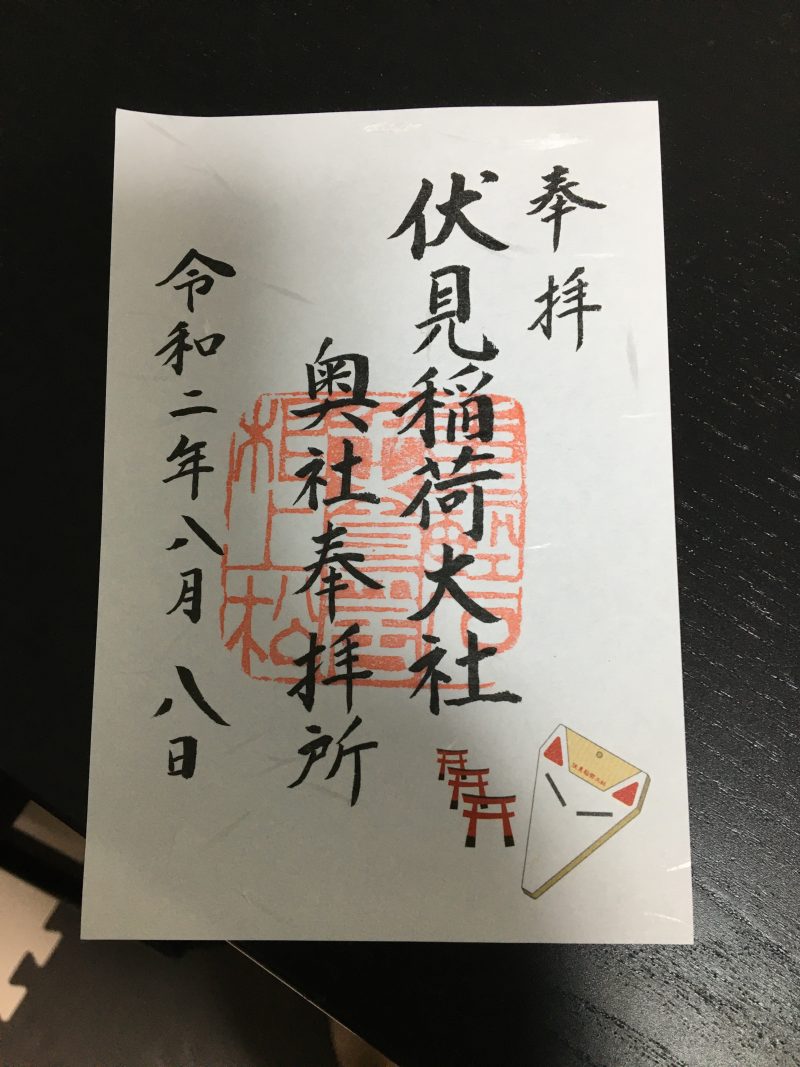 奉拝
伏見稲荷大社
奥社奉拝所
令和二年八月八日